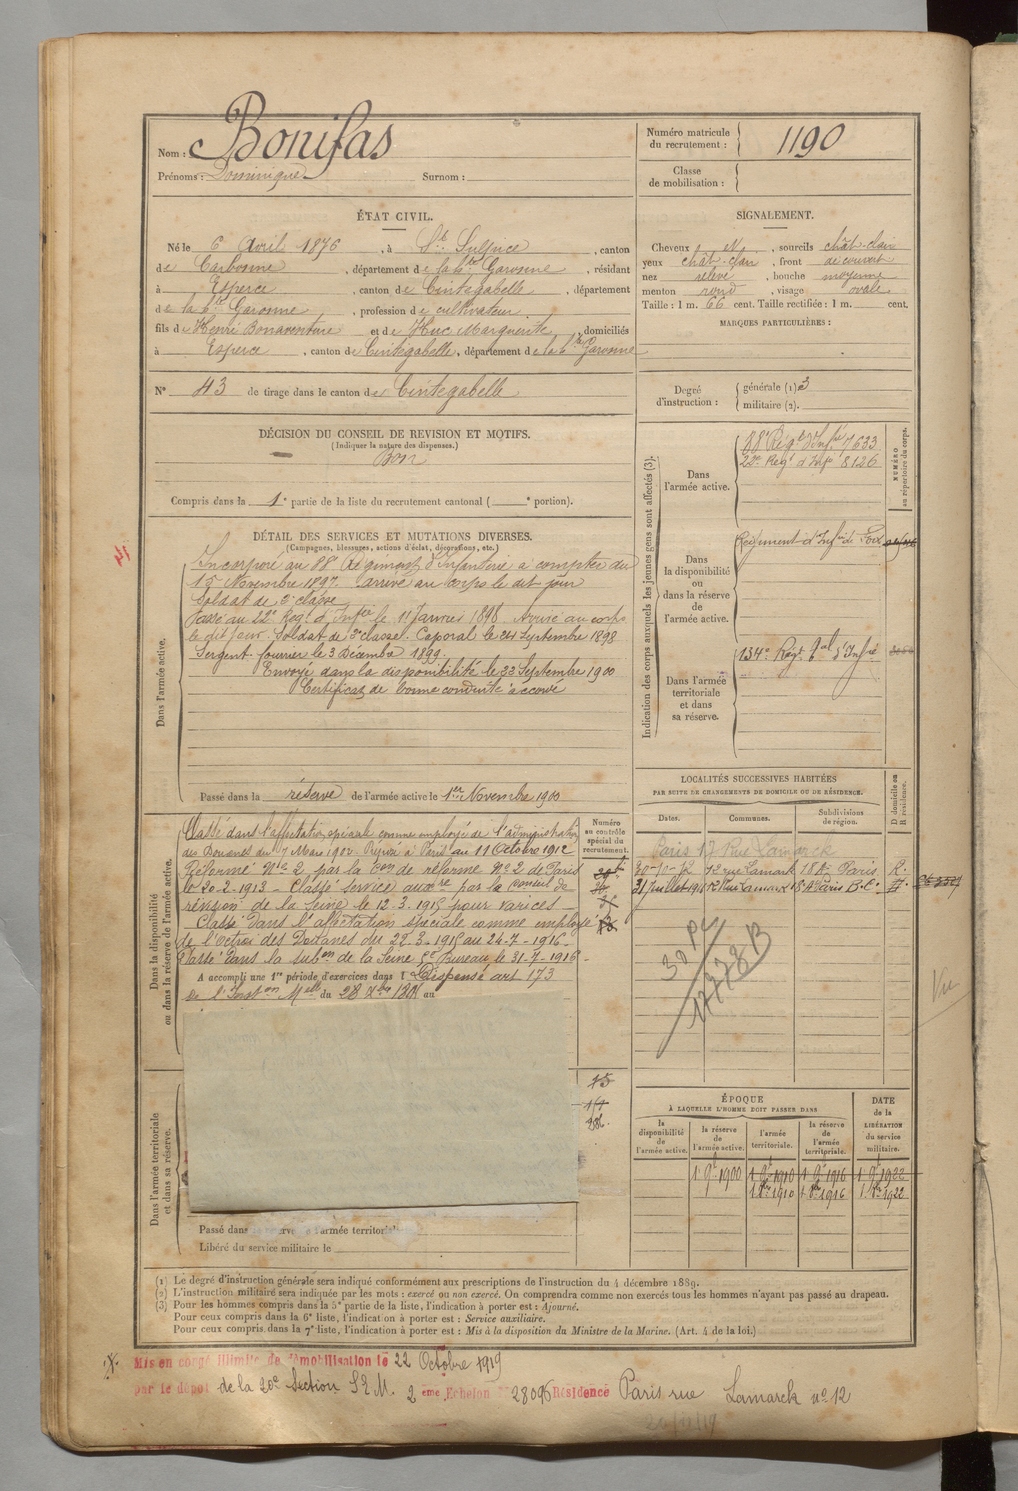 Nom : Bonifas
Prénoms : Dominique Surnom :
Numéro matricule du recrutement : 1190
Classe de mobilisation :
ÉTAT CIVIL.
Né le 6 Avril 1876, à St Sulpice, canton
de Carbonne, département de la hte Garonne, résidant
à Esperce, canton de Cintegabelle, département
de la hte Garonne, profession de cultivateur
fils de Henri Bonaventure et de Huc Marguerite, domiciliés
à Esperce, canton de Cintegabelle, département de la hte Garonne
N° 43 de tirage dans le canton de Cintegabelle
SIGNALEMENT.
Cheveux N, sourcils chât-clair
yeux chât-clair, front découvert
nez relevé, bouche moyenne
menton rond, visage ovale
Taille : 1 m. 66 cent. Taille rectifiée : 1 m. cent.
MARQUES PARTICULIÈRES :
Degré d'instruction : générale (1) 3
militaire (2).
DÉCISION DU CONSEIL DE REVISION ET MOTIFS.
(Indiquer la nature des dispenses.)
Bon
Compris dans la 1e partie de la liste du recrutement cantonal ( e portion).
DÉTAIL DES SERVICES ET MUTATIONS DIVERSES.
(Campagnes, blessures, actions d'éclat, décorations, etc.)
Dans l'armée active.
Incorporé au 88e Régiment d'Infanterie à compter du
15 Novembre 1897. arrivé au corps le dit jour
Soldat de 2e classe
Passé au 22e Reg. d'Infie le 11 Janvier 1898. Arrivé au corps
le dit jour. Soldat de 2e classe. Caporal le 24 Septembre 1898
Sergent fourrier le 3 Décembre 1899.
Envoyé dans la disponibilité le 22 Septembre 1900
Certificat de bonne conduite accordé
Passé dans la réserve de l'armée active le 1er Novembre 1900
Indication des corps auxquels les jeunes gens sont affectés (3).
NUMÉRO au répertoire du corps.
Dans l'armée active.
88e Régt d'Infie 7633
22e Regt d'Infie 8126
Dans la disponibilité ou dans la réserve de l'armée active.
Régiment d'Infie de Foix
Dans l'armée territoriale et dans sa réserve.
134e Régt tal d'Infie
Dans la disponibilité ou dans la réserve de l'armée active.
Classé dans l'affectation spéciale comme employé de l'administration
des Douanes du 7 Mars 1902. Réformé à Paris au 11 Octobre 1912
Réformé No 2 par la Con de réforme No 2 de Paris
le 20-2-1913 – Classé service auxre par la Conseil de
révision de la Seine le 12-3-1915 pour varices –
Classé dans l'affectation spéciale comme employé
de l'Octroi des Douanes du 22-3-1915 au 24-7-1916 –
Passé dans la subon de la Seine 5e Bureau le 31-7-1916 –
A accompli une 1re période d'exercices dans l Dispensé art 173
de l'Inston Melle du 28 Xbre 1895 au
Numéro au contrôle spécial du recrutement.
LOCALITÉS SUCCESSIVES HABITÉES
PAR SUITE DE CHANGEMENTS DE DOMICILE OU DE RÉSIDENCE.
Dates. Communes. Subdivisions de région. D domicile ou R résidence.
Paris 17 Rue Lamarck
20-10-12 12 rue Lamarck 18e Paris R.
31 Juillet 1916 12 Rue Lamarck 18e Paris
17778 B
Vu
ÉPOQUE
À LAQUELLE L'HOMME DOIT PASSER DANS
la disponibilité de l'armée active. la réserve de l'armée active. l'armée territoriale. la réserve de l'armée territoriale. DATE de la LIBÉRATION du service militaire.
1 9e 1900 1 9e 1910 1 9e 1916 1 9e 1922
1 8bre 1910 1 8bre 1916 1 8bre 1922
Dans l'armée territoriale et dans sa réserve.
Passé dans la réserve de l'armée territoriale
Libéré du service militaire le
(1) Le degré d'instruction générale sera indiqué conformément aux prescriptions de l'instruction du 4 décembre 1889.
(2) L'instruction militaire sera indiquée par les mots : exercé ou non exercé. On comprendra comme non exercés tous les hommes n'ayant pas passé au drapeau.
(3) Pour les hommes compris dans la 5e partie de la liste, l'indication à porter est : Ajourné.
Pour ceux compris dans la 6e liste, l'indication à porter est : Service auxiliaire.
Pour ceux compris dans la 7e liste, l'indication à porter est : Mis à la disposition du Ministre de la Marine. (Art. 4 de la loi.)
Mis en congé illimité de démobilisation le 22 Octobre 1919
par le dépôt de la 20e Section S.E.M. 2 ème Echelon 28096 Résidence Paris rue Lamarck no 12